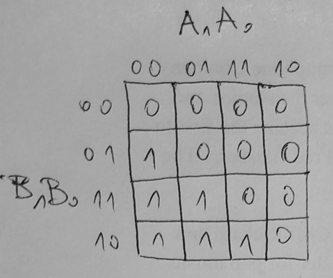 A₁A₀
00 01 11 10
00 0 0 0 0
01 1 0 0 0
B₁B₀ 11 1 1 0 0
10 1 1 1 0